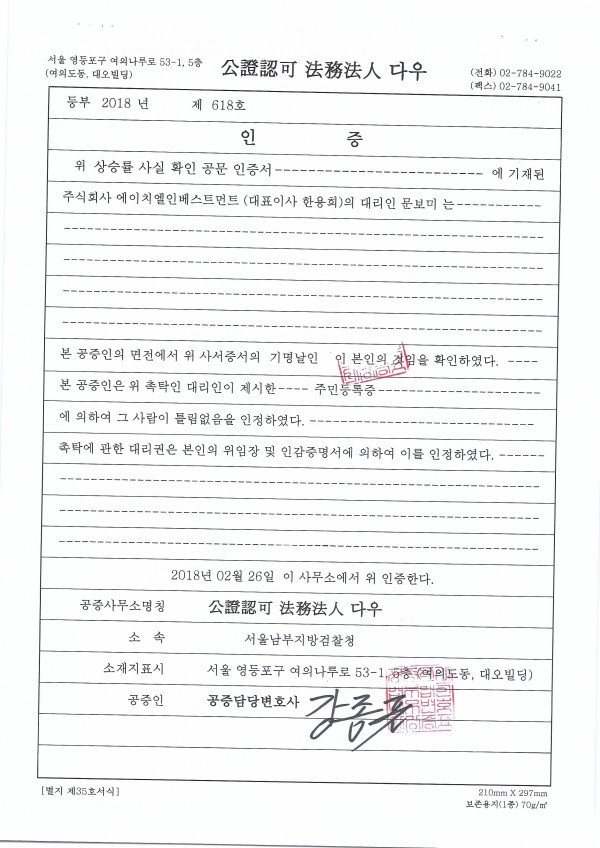 서울 영등포구 여의나루로 53-1, 5층
(여의도동, 대오빌딩)
公證認可 法務法人 다우
(전화) 02-784-9022
(팩스) 02-784-9041
등부 2018 년 제 618호
인 증
위 상승률 사실 확인 공문 인증서------------------------- 에 기재된
주식회사 에이치엘인베스트먼트 (대표이사 한용희)의 대리인 문보미 는-----------
본 공증인의 면전에서 위 사서증서의 기명날인 이 본인의 것임을 확인하였다. ----
본 공증인은 위 촉탁인 대리인이 제시한---- 주민등록증--------------------
에 의하여 그 사람이 틀림없음을 인정하였다. ---------------------------
촉탁에 관한 대리권은 본인의 위임장 및 인감증명서에 의하여 이를 인정하였다. ------
2018년 02월 26일 이 사무소에서 위 인증한다.
공증사무소명칭 公證認可 法務法人 다우
소 속 서울남부지방검찰청
소재지표시 서울 영등포구 여의나루로 53-1, 5층 (여의도동, 대오빌딩)
공증인 공증담당변호사
[별지 제35호서식]
210mm X 297mm
보존용지(1종) 70g/㎡